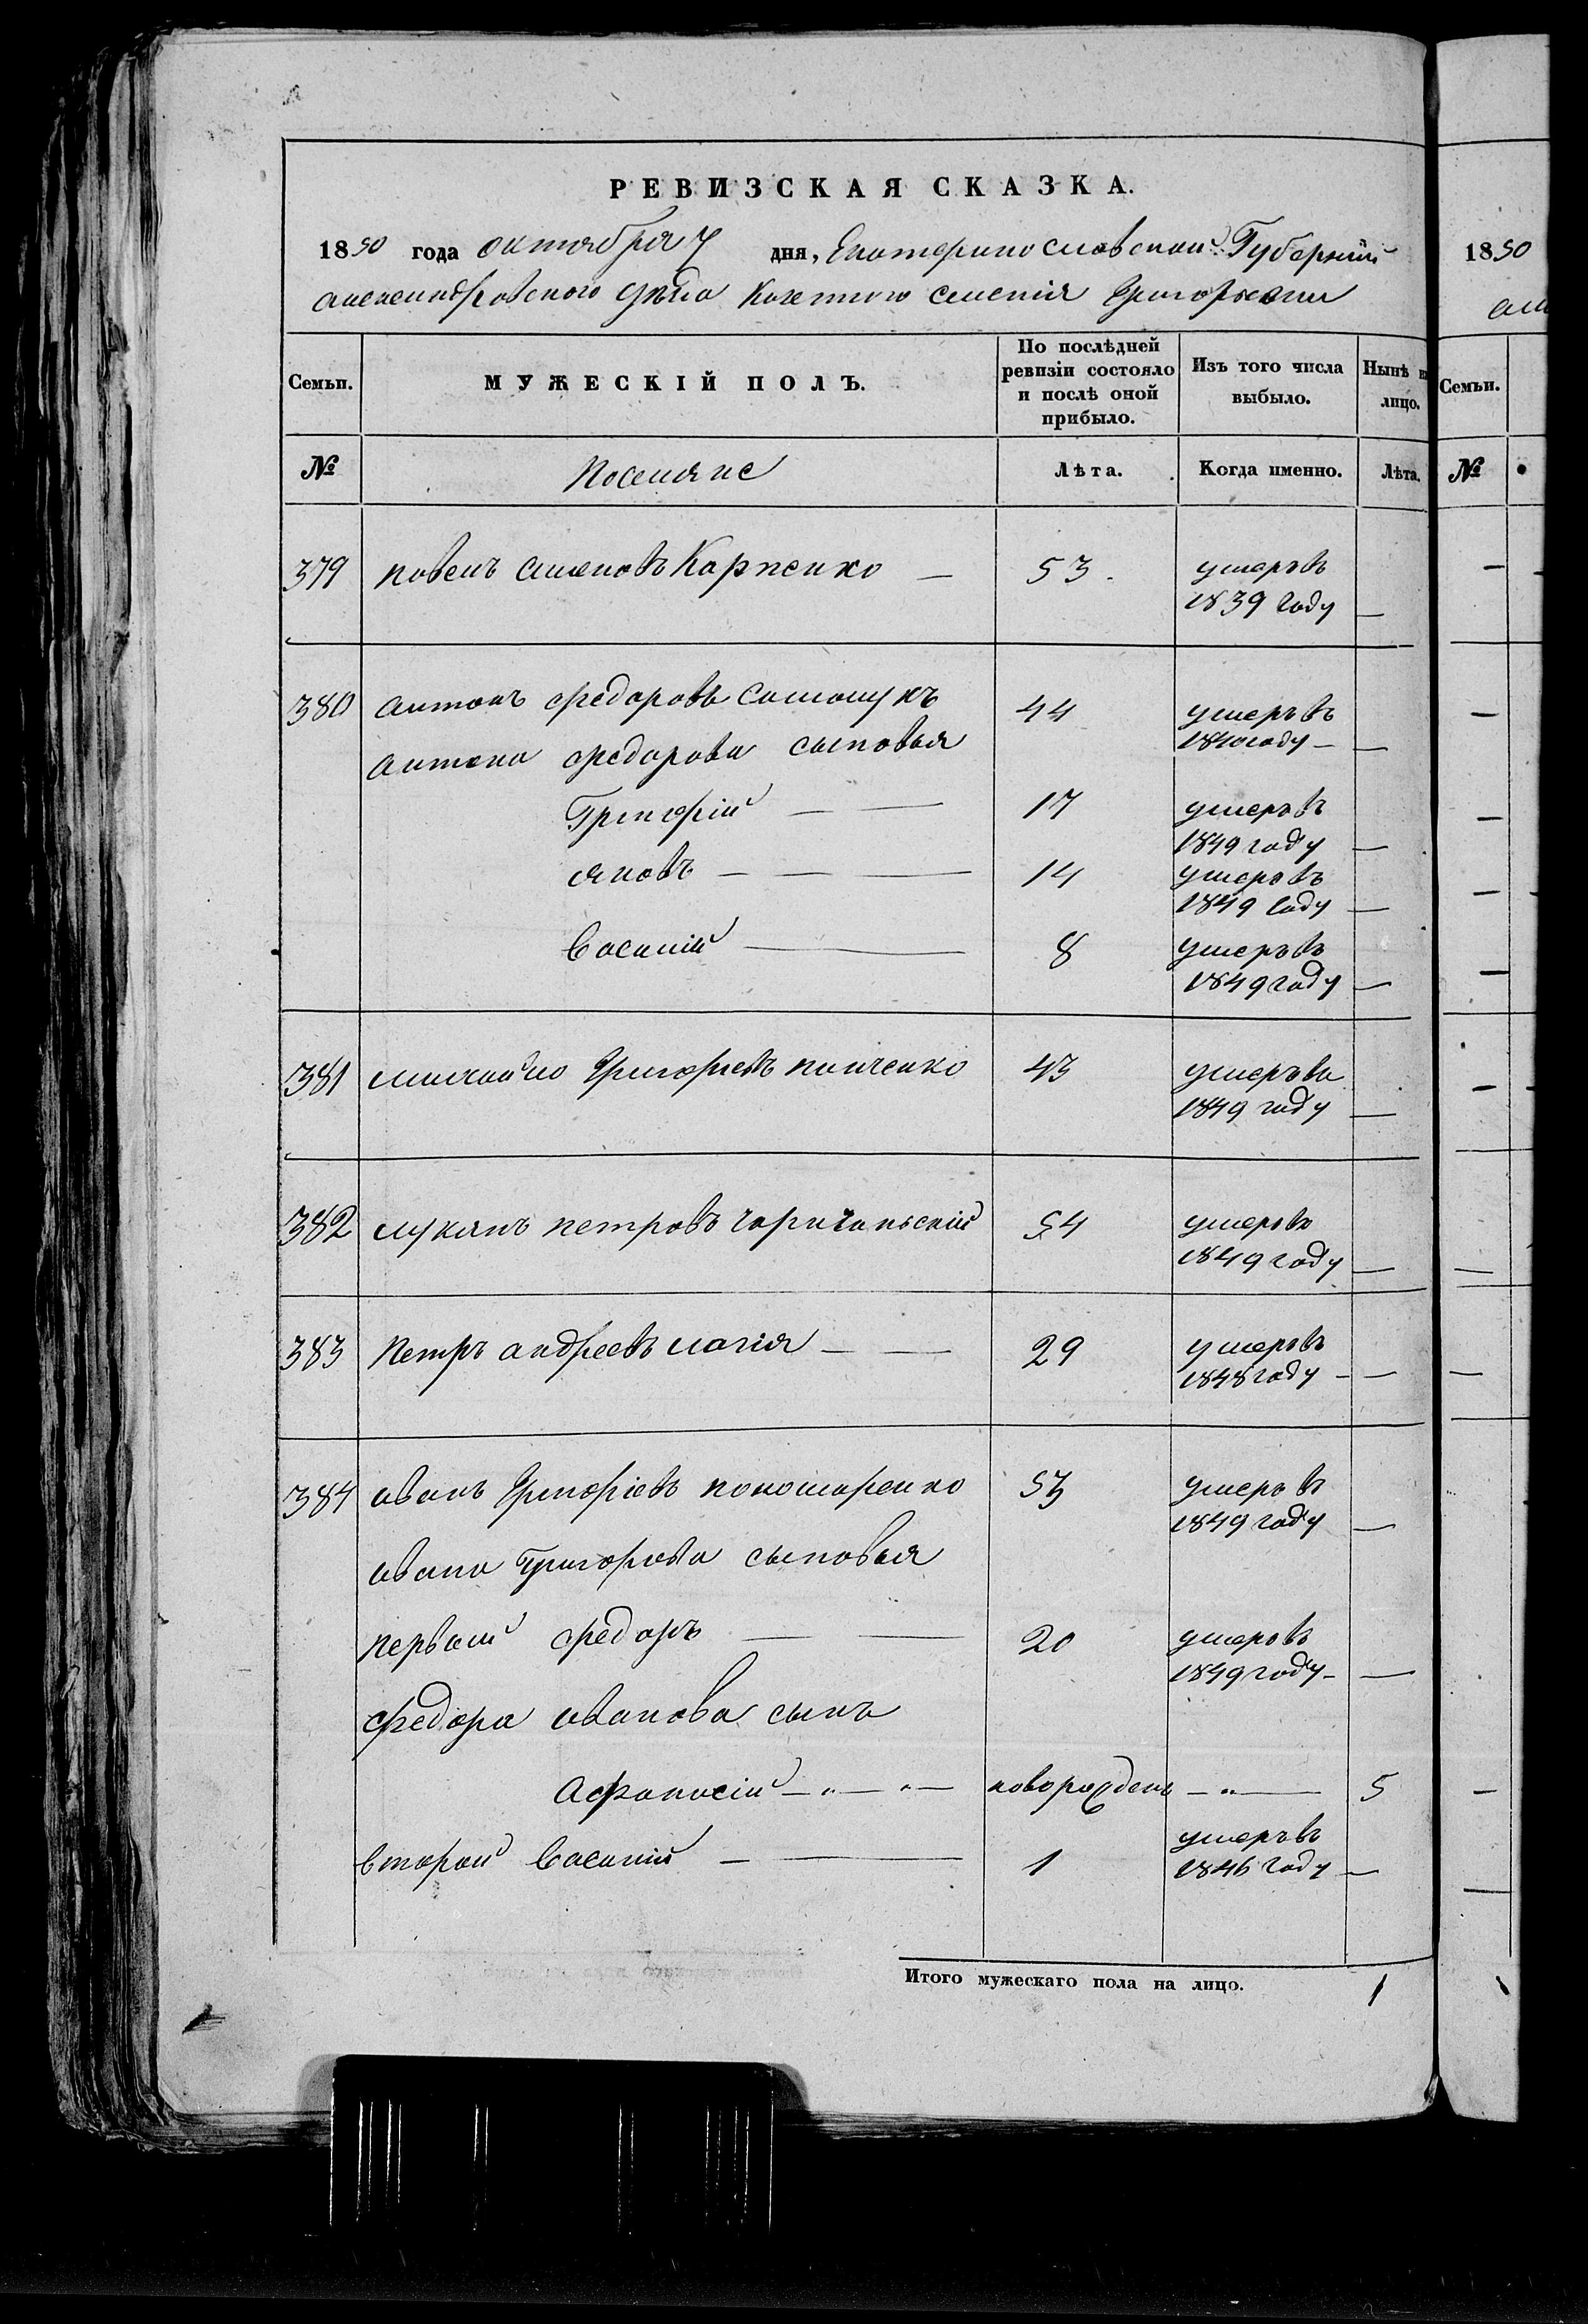 РЕВИЗСКАЯ СКАЗКА.
1850 года октября 7 дня, Екатеринославской Губерніи
александровского уезда Казенного селенія Григорьевки
Семьи. МУЖЕСКІЙ ПОЛЪ. По послѣдней ревизіи состояло и послѣ оной прибыло. Изъ того числа выбыло. Нынѣ на лицо.
№ Поселяне Лѣта. Когда именно. Лѣта.
379 повелъ Карпенко — 53. умеръ въ
1839 году —
380 антонъ федоровъ 44 умеръ въ
1840 году — —
антона федорова сыновья
Григорій — — 17 умеръ въ
1849 году —
яковъ — — — 14 умеръ въ
1849 году —
Василій — 8 умеръ въ
1849 году —
381 михайло Григорьевъ 43 умеръ въ
1849 году —
382 лукянъ петровъ 54 умеръ въ
1849 году —
383 Петръ андреевъ — — 29 умеръ въ
1848 году — —
384 иванъ Григоріевъ пономаренко 53 умеръ въ
1849 году —
ивана Григорьева сыновья
первый федоръ — — 20 умеръ въ
1849 году — —
федора иванова сынъ
Афанасій — „ — „ — новорожденъ — „ — 5
второй Василій — — 1 умеръ въ
1846 году —
Итого мужескаго пола на лицо. 1
1850
Семьи.
№